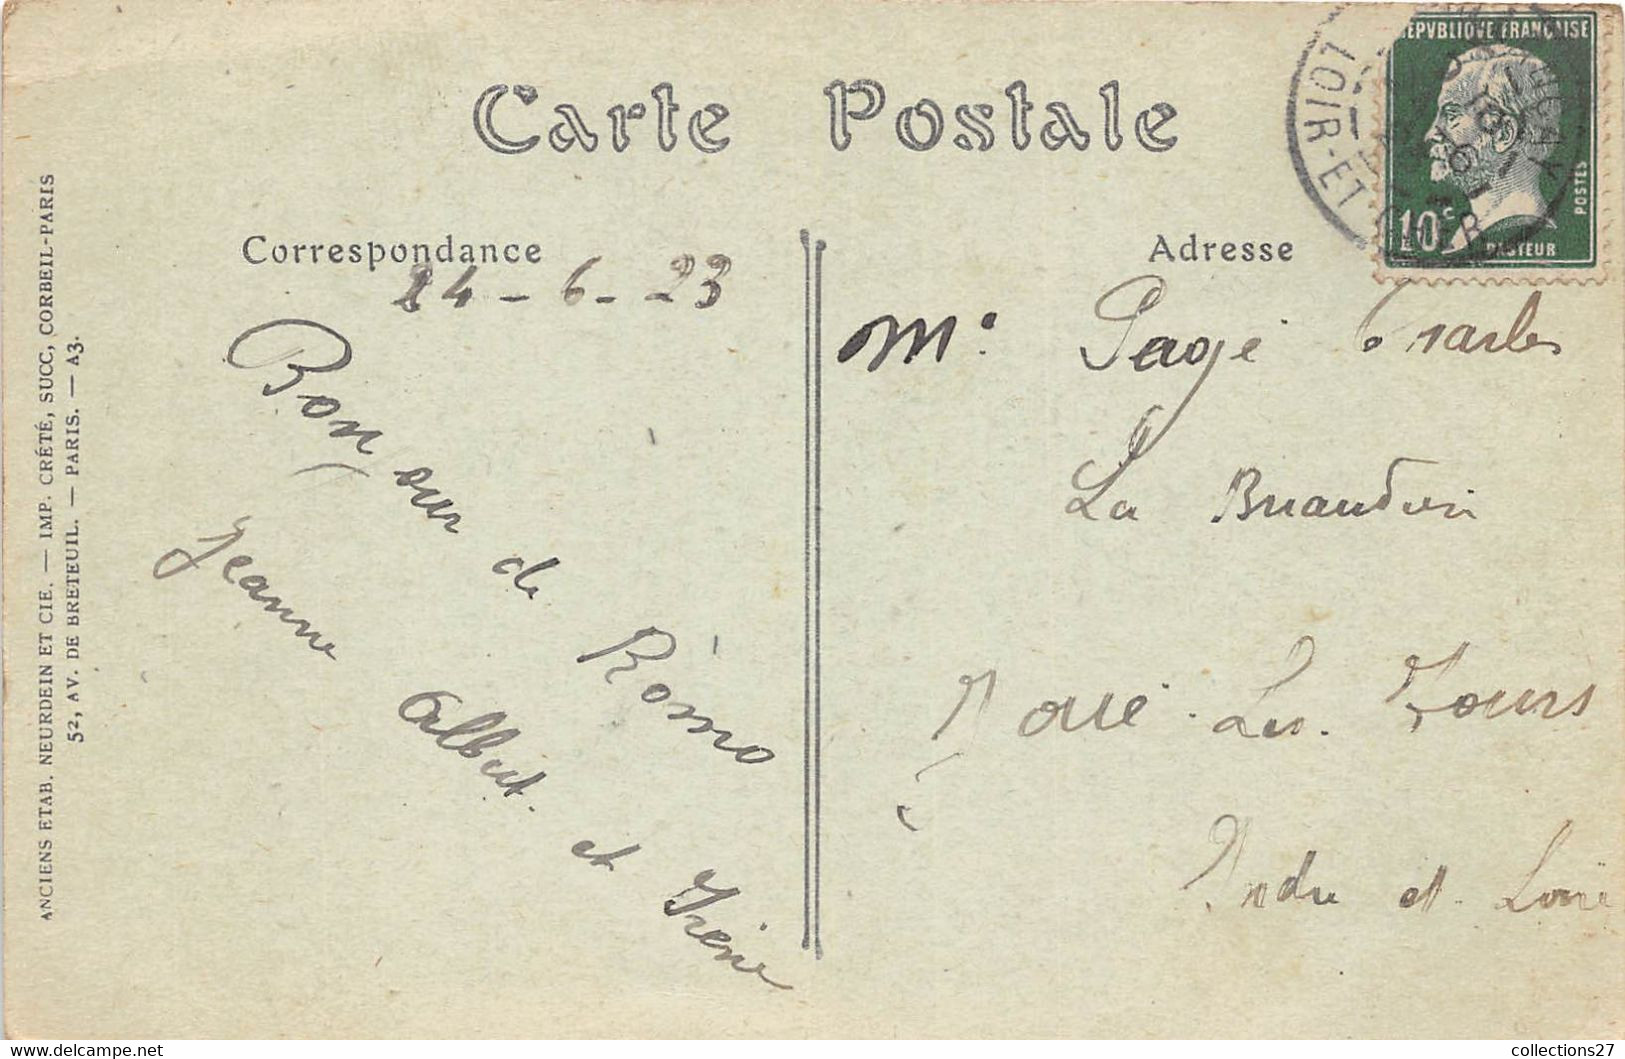 Carte Postale
RÉPVBLIQVE FRANÇAISE
POSTES
10c
PASTEUR
LOIR-ET-CHER
Correspondance
24 - 6 - 23
Bonjour de
Jeanne
Albert et Irène
Adresse
Mr. Pagé Charles
La
Joué-Les-Tours
Indre et Loire
ANCIENS ETAB. NEURDEIN ET CIE. — IMP. CRÉTÉ, SUCC, CORBEIL-PARIS
52, AV. DE BRETEUIL. — PARIS. — A3.
collections27